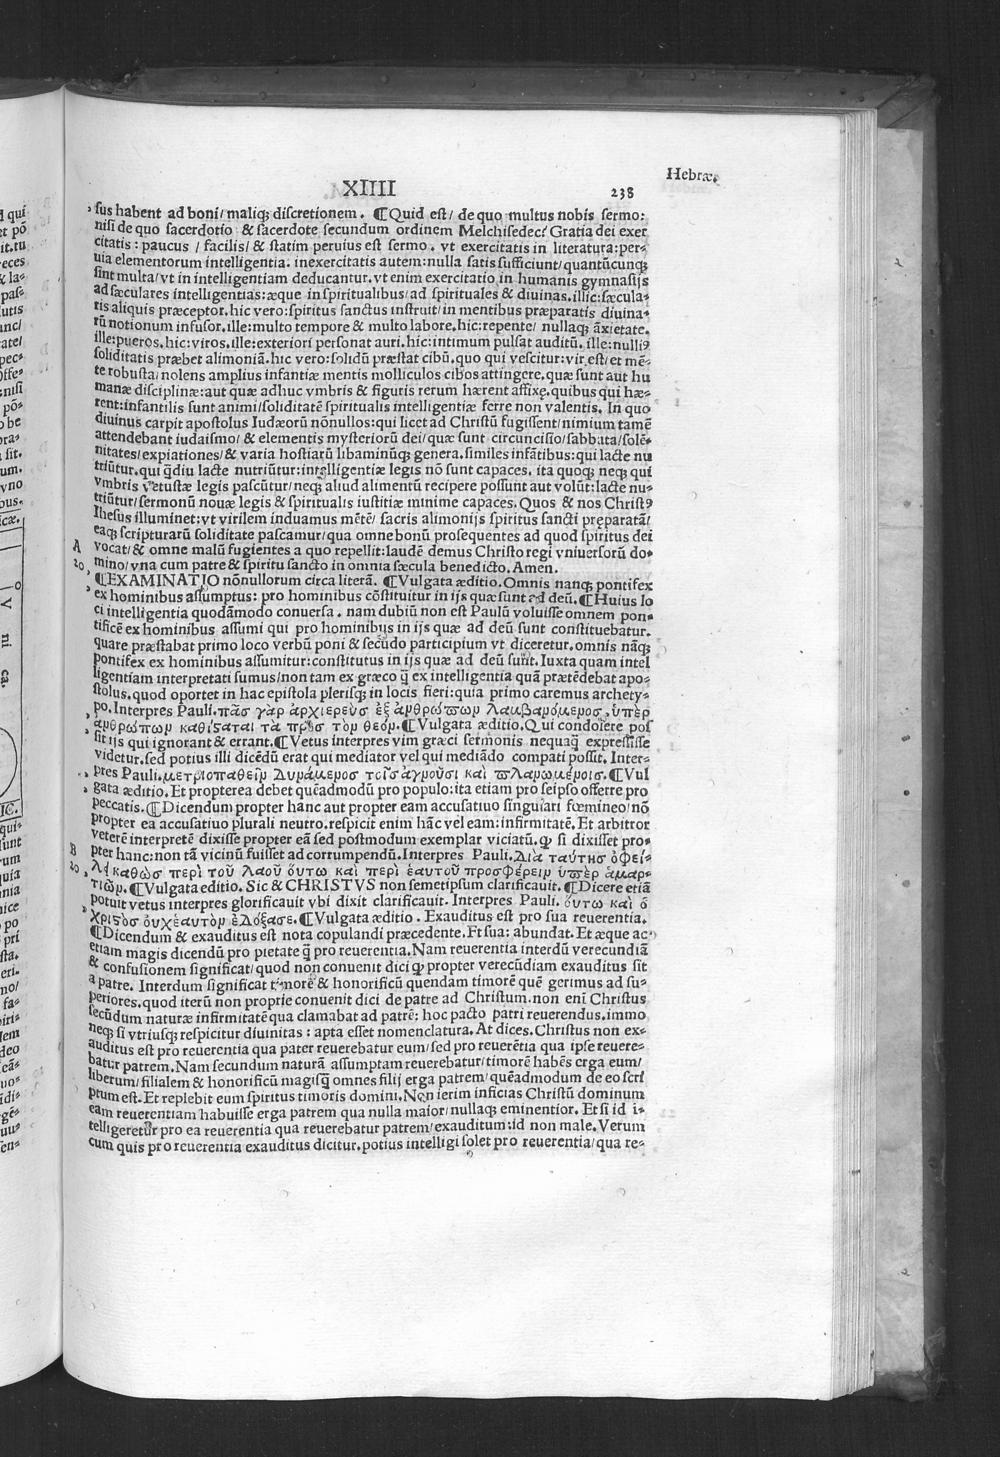 XIIII
238
Hebræ.
sus habent ad boni/ maliqʒ discretionem. ¶Quid est/ de quo multus nobis sermo:
nisi de quo sacerdotio & sacerdote secundum ordinem Melchisedec? Gratia dei exer
citatis: paucus / facilis/ & statim peruius est sermo. vt exercitatis in literatura: per-
uia elementorum intelligentia. inexercitatis autem: nulla satis sufficiunt/ quantūcunqʒ
sint multa/ vt in intelligentiam deducantur. vt enim exercitatio in humanis gymnasijs
ad sæculares intelligentias: æque in spiritualibus/ ad spirituales & diuinas. illic: sæcula-
ris aliquis præceptor. hic vero: spiritus sanctus instruit/ in mentibus præparatis diuina-
rū notionum infusor. ille: multo tempore & multo labore. hic: repente/ nullaqʒ āxietate.
ille: pueros. hic: viros. ille: exteriori personat auri. hic: intimum pulsat auditū. ille: nulliꝰ
soliditatis præbet alimoniā. hic vero: solidū præstat cibū. quo qui vescitur: vir est/ et mē-
te robusta/ nolens amplius infantiæ mentis molliculos cibos attingere. quæ sunt aut hu
manæ disciplinæ: aut quæ adhuc vmbris & figuris rerum hærent affixę. quibus qui hæ-
rent: infantilis sunt animi/ soliditatē spiritualis intelligentiæ ferre non valentis. In quo
diuinus carpit apostolus Iudæorū nōnullos: qui licet ad Christū fugissent/ nimium tamē
attendebant iudaismo/ & elementis mysteriorū dei/ quæ sunt circuncisio/ sabbata/ solē-
nitates/ expiationes/ & varia hostiarū libaminūqʒ genera. similes infātibus: qui lacte nu
triūtur. qui q̄diu lacte nutriūtur: intelligentiæ legis nō sunt capaces. ita quoqʒ neqʒ qui
vmbris vetustæ legis pascūtur/ neqʒ aliud alimentū recipere possunt aut volūt: lacte nu-
triūtur/ sermonū nouæ legis & spiritualis iustitiæ minime capaces. Quos & nos Christꝰ
Ihesus illuminet: vt virilem induamus mētē/ sacris alimonijs spiritus sancti pręparatā/
eaqʒ scripturarū soliditate pascamur/ qua omne bonū prosequentes ad quod spiritus dei
A vocat/ & omne malū fugientes a quo repellit: laudē demus Christo regi vniuersorū do-
20 mino/ vna cum patre & spiritu sancto in omnia sæcula benedicto. Amen.
¶EXAMINATIO nōnullorum circa literā. ¶Vulgata æditio. Omnis nanqʒ pontifex
ex hominibus assumptus: pro hominibus cōstituitur in ijs quæ sunt ad deū. ¶Huius lo
ci intelligentia quodāmodo conuersa. nam dubiū non est Paulū voluisse omnem pon-
tificē ex hominibus assumi qui pro hominibus in ijs quæ ad deū sunt constituebatur.
quare præstabat primo loco verbū poni & secūdo participium vt diceretur. omnis nāqʒ
pontifex ex hominibus assumitur: constitutus in ijs quæ ad deū sunt. Iuxta quam intel
ligentiam interpretati sumus/ non tam ex græco q̄ ex intelligentia quā prætēdebat apo-
stolus. quod oportet in hac epistola plerisqʒ in locis fieri: quia primo caremus archety-
po. Interpres Pauli. πᾶσ γὰρ ἀρχιερεὺσ ἐξ ἀνθρώπων λαμβανόμενος, ὑπὲρ
ἀνθρώπων καθίσαται τὰ πρὸσ τὸν θεόν. ¶Vulgata æditio. Qui condolere pos
sit ijs qui ignorant & errant. ¶Vetus interpres vim græci sermonis nequaqʒ expressisse
videtur. sed potius illi dicēdū erat qui mediator vel qui mediādo compati possit. Inter-
pres Pauli. μετριοπαθεῖν δυνάμενοσ τοῖσ ἀγνοῦσι καὶ πλανωμένοισ. ¶Vul
gata æditio. Et propterea debet quēadmodū pro populo: ita etiam pro seipso offerre pro
peccatis. ¶Dicendum propter hanc aut propter eam accusatiuo singulari fœmineo/ nō
propter ea accusatiuo plurali neutro. respicit enim hāc vel eam: infirmitatē. Et arbitror
veterē interpretē dixisse propter eā sed postmodum exemplar viciatū. qꝫ si dixisset pro-
B pter hanc: non tā vicinū fuisset ad corrumpendū. Interpres Pauli. Διὰ ταύτησ ὀφεί-
20 λει καθὼσ περὶ τοῦ λαοῦ οὕτω καὶ περὶ ἑαυτοῦ προσφέρειν ὑπὲρ ἁμαρ-
τιῶν. ¶Vulgata editio. Sic & CHRISTVS non semetipsum clarificauit. ¶Dicere etiā
potuit vetus interpres glorificauit vbi dixit clarificauit. Interpres Pauli. οὕτω καὶ ὁ
χριςὸσ οὐχ ἑαυτὸν ἐδόξασε. ¶Vulgata æditio. Exauditus est pro sua reuerentia.
¶Dicendum & exauditus est nota copulandi præcedente. Et sua: abundat. Et æque ac
etiam magis dicendū pro pietate q̄ pro reuerentia. Nam reuerentia interdū verecundiā
& confusionem significat/ quod non conuenit dici qꝫ propter verecūdiam exauditus sit
a patre. Interdum significat timorē & honorificū quendam timorē quē gerimus ad su-
periores. quod iterū non proprie conuenit dici de patre ad Christum. non enī Christus
secūdum naturæ infirmitatē qua clamabat ad patrē: hoc pacto patri reuerendus. immo
neqʒ si vtriusqʒ respicitur diuinitas: apta esset nomenclatura. At dices. Christus non ex-
auditus est pro reuerentia qua pater reuerebatur eum/ sed pro reuerētia qua ipse reuere-
batur patrem. Nam secundum naturā assumptam reuerebatur/ timorē habēs erga eum/
liberum/ filialem & honorificū magisq̄ omnes filij erga patrem/ quēadmodum de eo scri
ptum est. Et replebit eum spiritus timoris domini. Non ierim inficias Christū dominum
eam reuerentiam habuisse erga patrem qua nulla maior/ nullaqʒ eminentior. Et si id i-
telligeretur pro ea reuerentia qua reuerebatur patrem/ exauditum: id non male. Verum
cum quis pro reuerentia exauditus dicitur. potius intelligi solet pro reuerentia/ qua re-